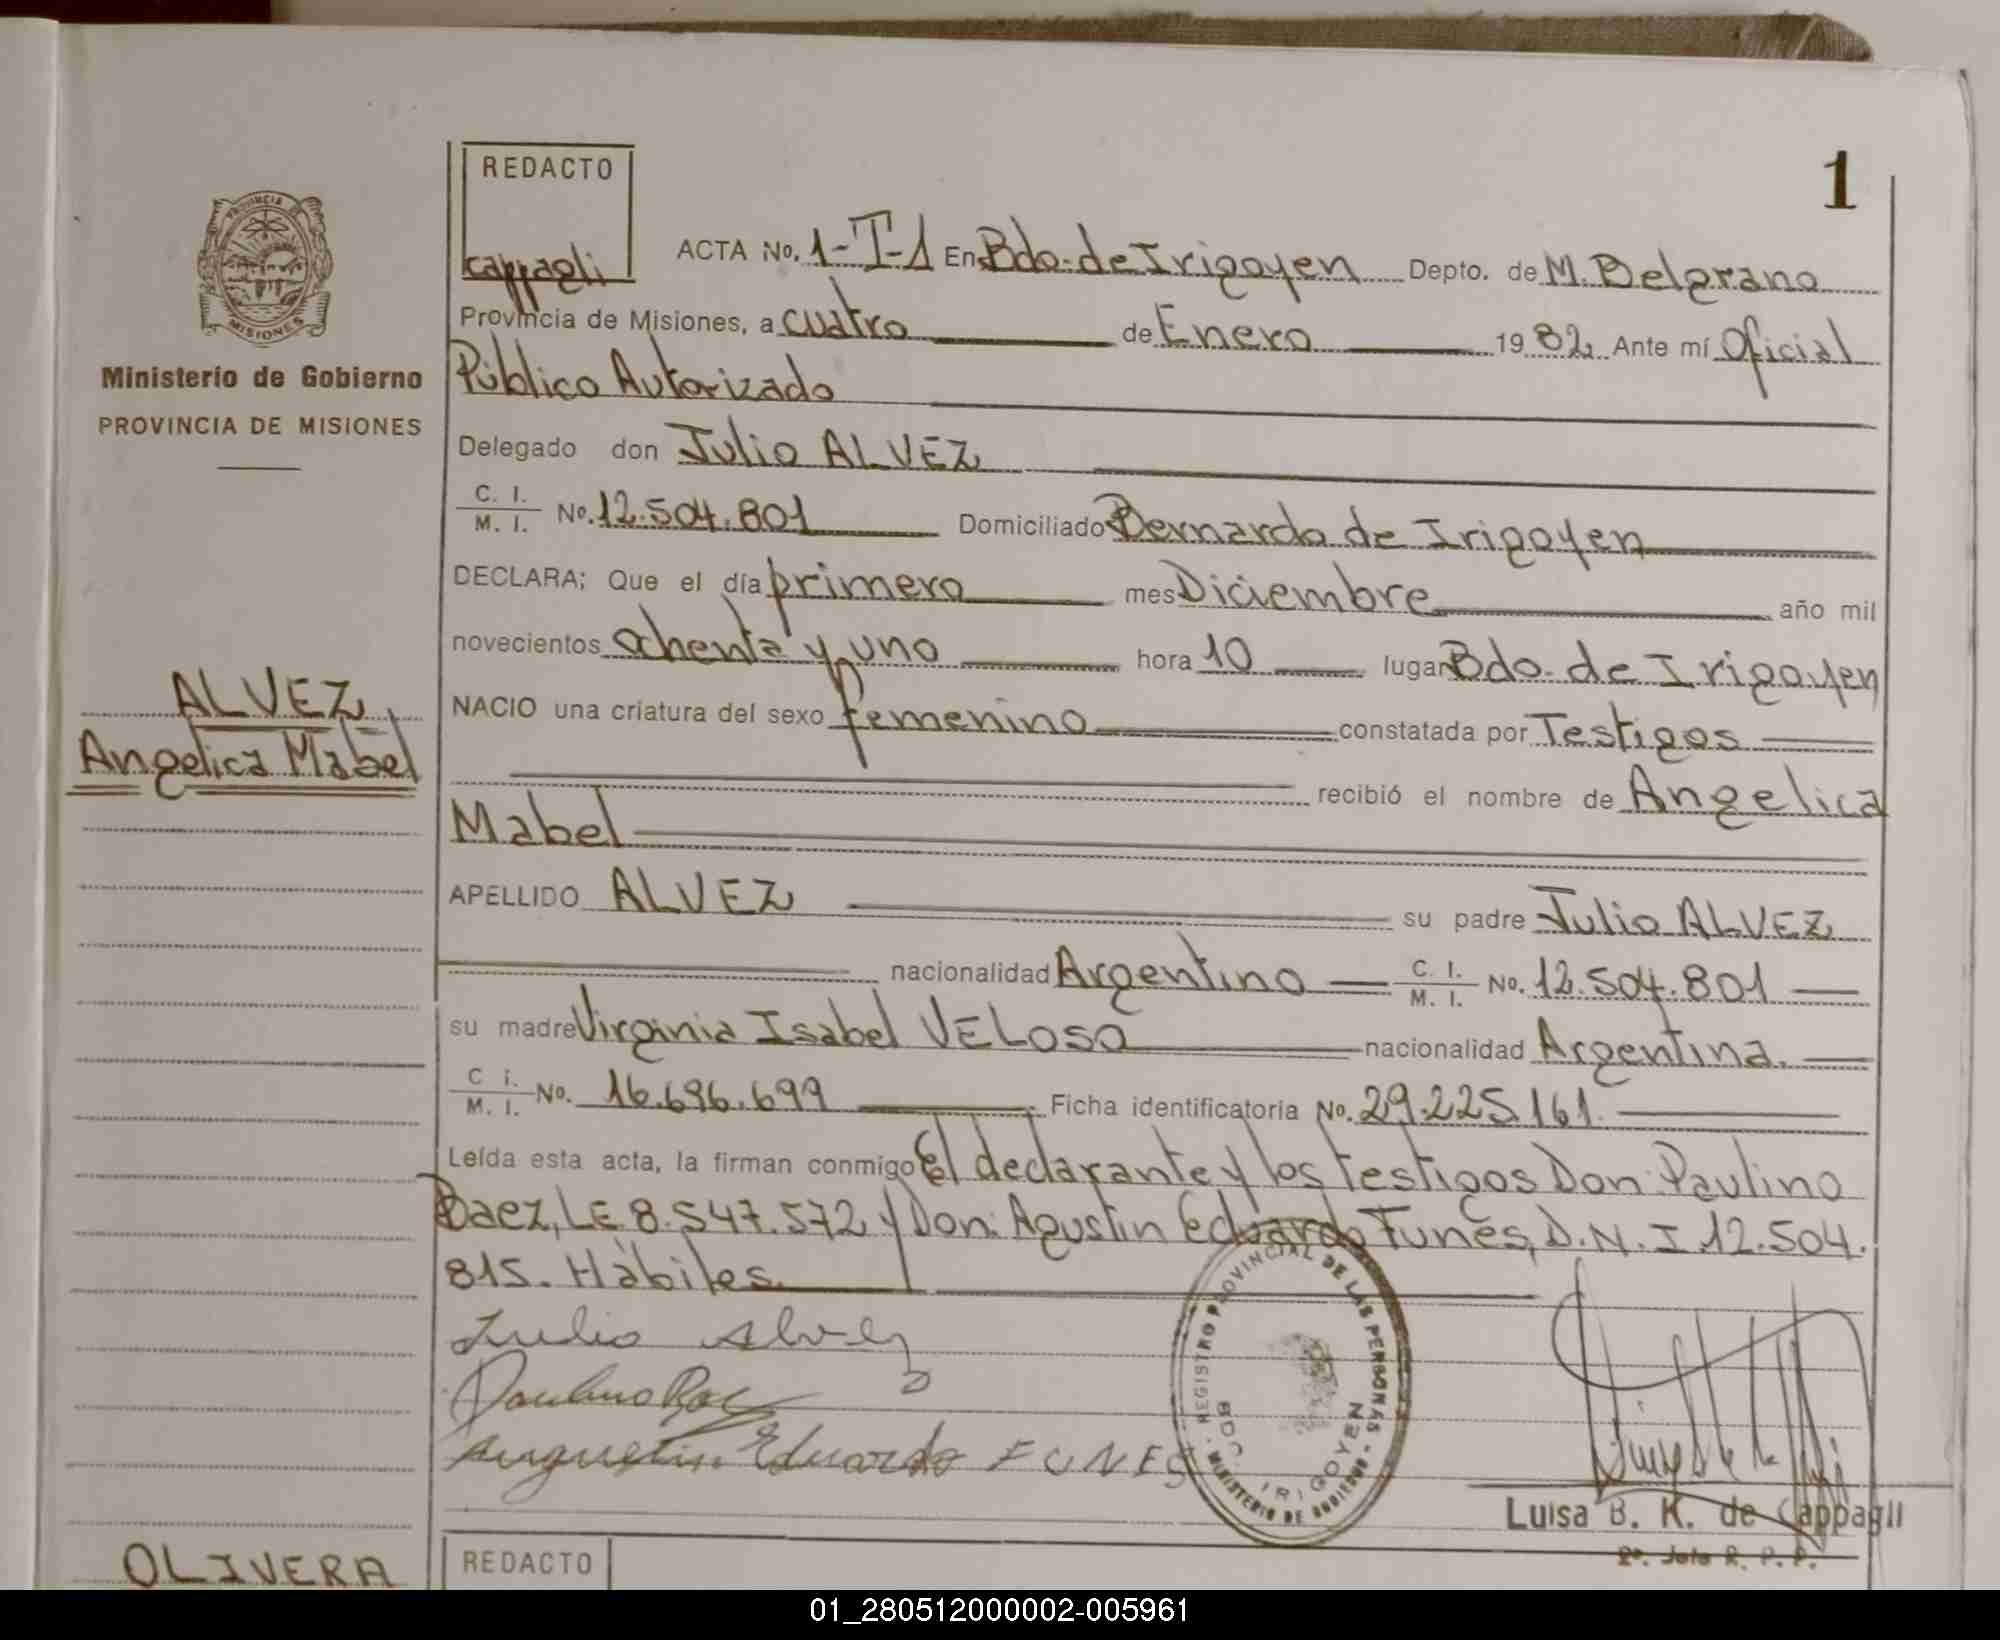 1
REDACTO
cappagli
PROVINCIA DE
MISIONES
Ministerio de Gobierno
PROVINCIA DE MISIONES
ALVEZ,
Angelica Mabel
ACTA No. 1-T-1 En Bdo. de Irigoyen Depto. de M. Belgrano
Provincia de Misiones, a cuatro de Enero 1982 Ante mí Oficial
Público Autorizado
Delegado don Julio ALVEZ
C. I. / M. I. No. 12.504.801 Domiciliado Bernardo de Irigoyen
DECLARA; Que el día primero mes Diciembre año mil
novecientos ochenta y uno hora 10 lugar Bdo. de Irigoyen
NACIO una criatura del sexo femenino constatada por Testigos
recibió el nombre de Angelica
Mabel
APELLIDO ALVEZ su padre Julio ALVEZ
nacionalidad Argentino C. I. / M. I. No. 12.504.801
su madre Virginia Isabel VELOSO nacionalidad Argentina.
C i. / M. I. No. 16.696.699 Ficha identificatoria No. 29.225.161.
Leída esta acta, la firman conmigo El declarante y los testigos Don: Paulino
Baez, LE 8.547.572 y Don: Agustin Eduardo Funes, D.N.I 12.504.
815. Hábiles.
Julio Alvez
Paulino
Eduardo FUNES
REGISTRO PROVINCIAL DE LAS PERSONAS
MINISTERIO DE GOBIERNO
BDO. IRIGOYEN
Luisa B. K. de Cappagli
2º. Jefe R. P. P.
OLIVERA
REDACTO
01_280512000002-005961